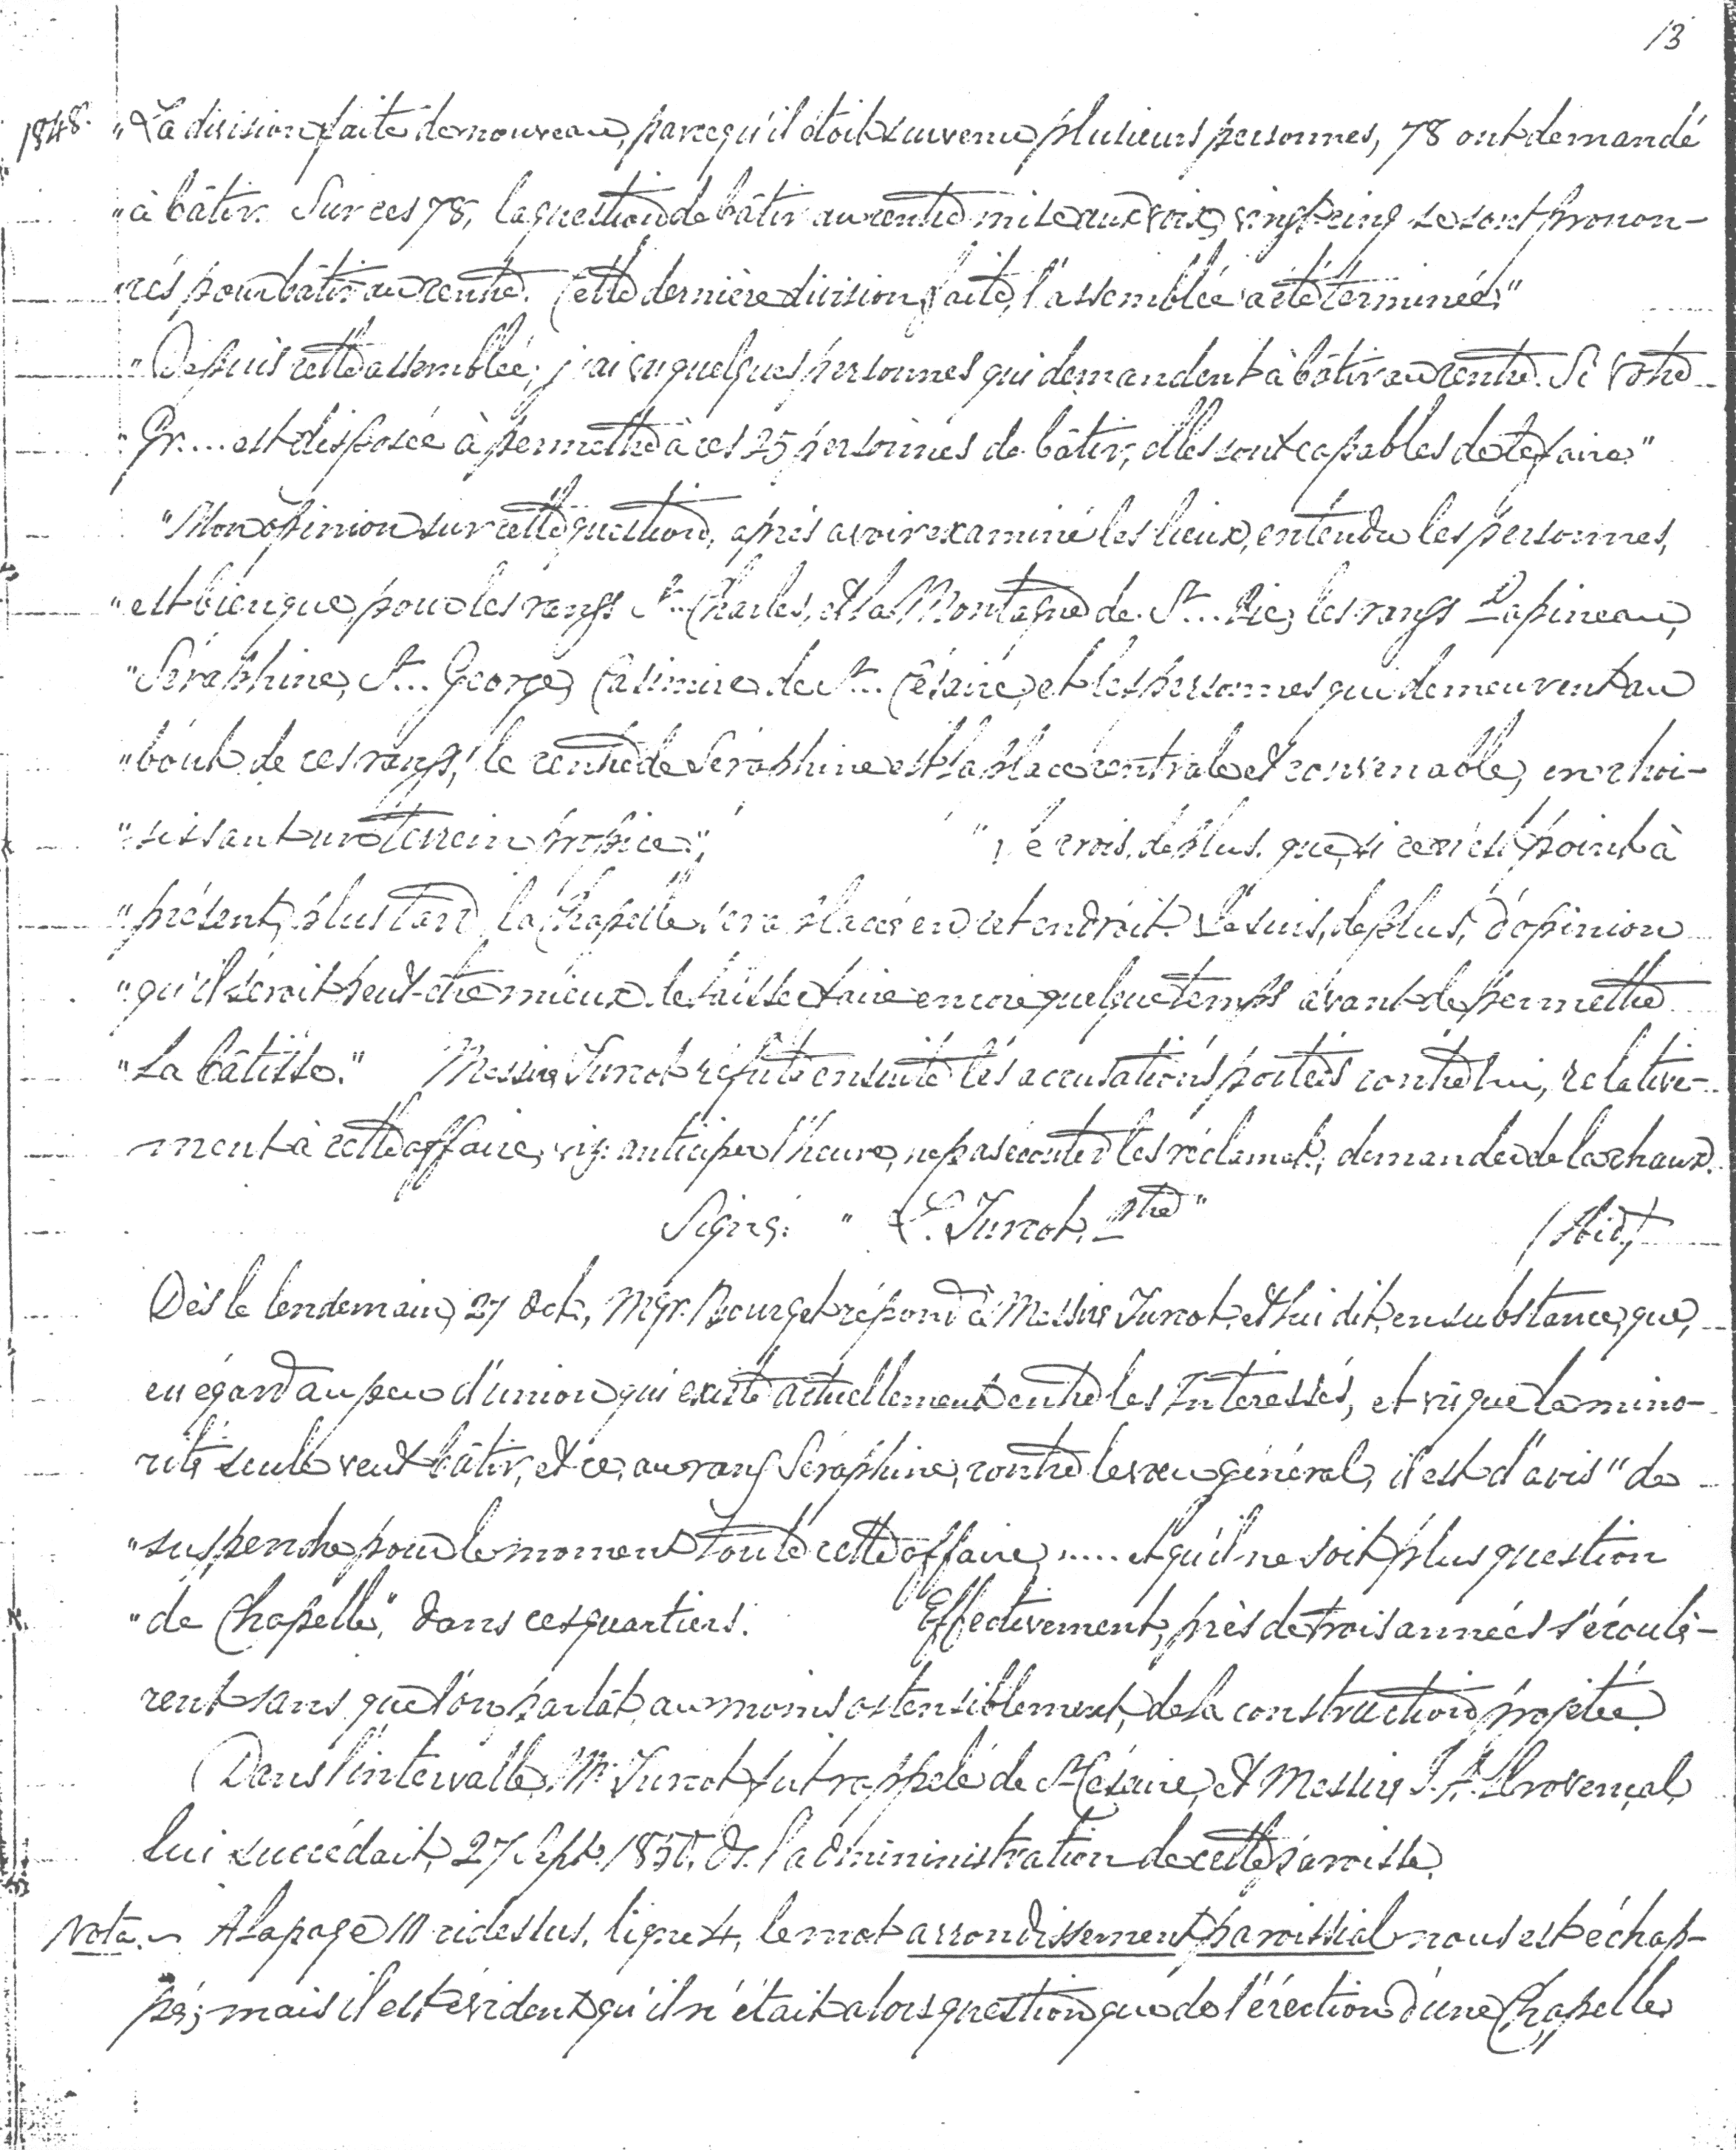 13
1848. "La division faite de nouveau, parcequ'il étoit survenu plusieurs personnes, 78 ont demandé
"à bâtir. Sur ces 78, la question de bâtir au centre mise aux voix, vingt-cinq se sont pronon-
"cés pour bâtir au centre. Cette dernière division faite, l'assemblée a été terminée."
"Depuis cette assemblée, j'ai vu quelques personnes qui demandent à bâtir au centre. Si Votre
"Gr... est disposée à permettre à ces 25 personnes de bâtir, elles sont capables de le faire."
"Mon opinion sur cette question, après avoir examiné les lieux, entendu les personnes,
"est bien que, pour les rangs St... Charles, et la Montagne de St... Pie, les rangs Papineau,
"Séraphine, St... George, Casimire de St... Césaire, et les personnes qui demeurent au
"bout de ces rangs, le centre de Séraphine est la place centrale et convenable, en choi-
"sissant un terrein propice."; "Je crois, de plus, que, si ce n'est point à
"présent, plus tard, la Chapelle sera placée en cet endroit. Je suis, de plus, d'opinion
"qu'il seroit peut-être mieux de laisser faire encore quelque temps avant de permettre
"la bâtisse." Messire Turcot réfute ensuite les accusations portées contre lui, relative-
ment à cette affaire, viz: anticiper l'heure, ne pas écouter les réclamat., demander de la chaux.
Signé: " L. Turcot, Ptre " (Ibid.)
Dès le lendemain, 27 Oct., Mgr. Bourget répond à Messire Turcot, et lui dit, en substance, que,
eu égard au peu d'union qui existe actuellement entre les Intéressés, et vu que la mino-
rité seule veut bâtir, et ce, au rang Séraphine, contre le vœu général, il est d'avis "de
"suspendre pour le moment toute cette affaire, ..... et qu'il ne soit plus question
"de Chapelle", dans ces quartiers. Effectivement, près de trois années s'écoulè-
rent sans que l'on parlât, au moins ostensiblement, de la construction projetée.
Dans l'intervalle, Mr. Turcot fut rappelé de St Césaire, et Messire J. A. Provençal
lui succédait, 27 Sept. 1850, ds. l'admininistration de cette paroisse.
Nota. ~ A la page 10 ci dessus, ligne 4, le mot arrondissement paroissial nous est échap-
pé; mais il est évident qu'il n'était alors question que de l'érection d'une Chapelle